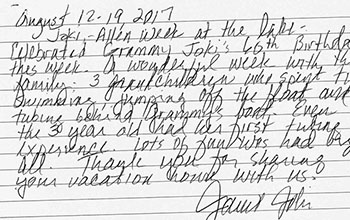 August 12-19 2017
Joki-Allen Week at the Lake-
Celebrated Grammy Joki's 60th Birthday
this week. A wonderful week with the
family. 3 grandchildren who spent
swimming jumping off the float and
tubing behind Grammy's boat. Even
the 3 year old had her first tubing
experience. Lots of fun was had by
all. Thank you for sharing
your vacation home with us.
Joki